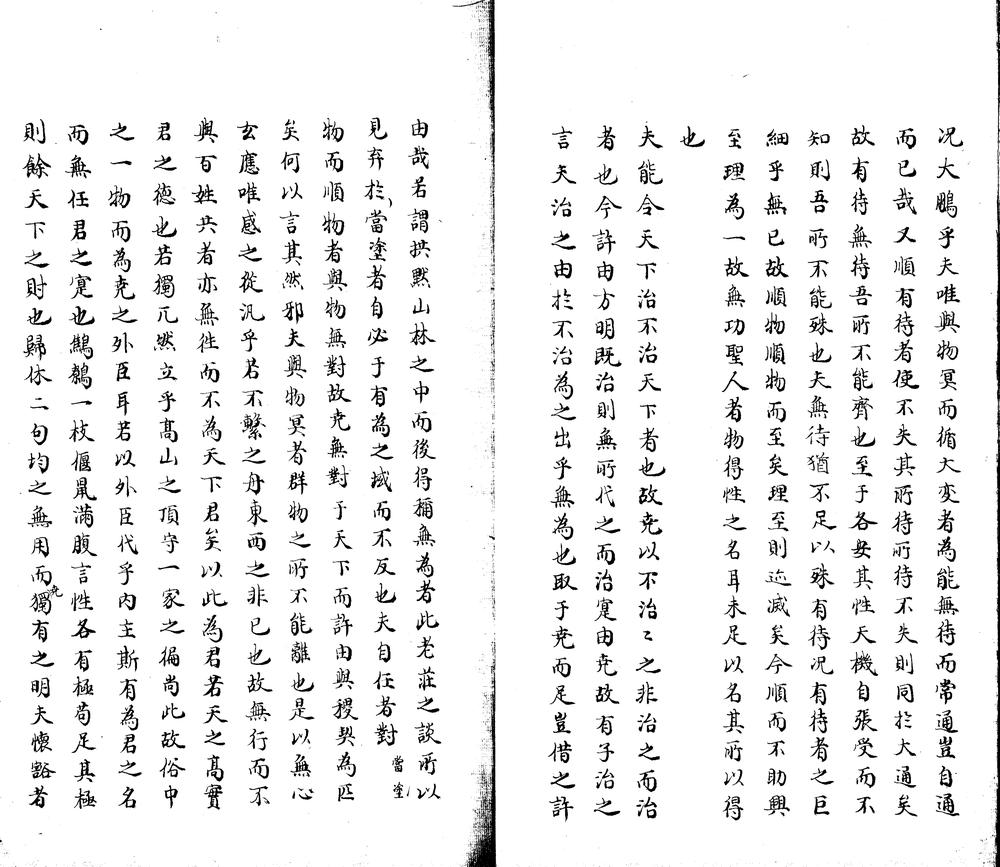 况大鵬乎夫唯與物冥而循大変者為能無待而常通豈自通
而已哉又順有待者使不失其所待所待不失則同於大通矣
故有待無待吾所不能齊也至于各安其性天機自張受而不
知則吾所不能殊也夫無待猶不足以殊有待况有待者之巨
細乎無已故順物順物而至矣理至則迹滅矣今順而不助與
至理為一故無功聖人者物得性之名耳未足以名其所以得
也
夫能令天下治不治天下者也故尭以不治〻之非治之而治
者也今許由方明既治則無所代之而治寔由尭故有子治之
言夫治之由於不治為之出乎無為也取于尭而足豈借之許
由哉若謂拱黙山林之中而後得稱無為者此老莊之談所以
見弃於當塗者自必于有為之域而不反也夫自任者對
當塗
物而順物者與物無對故尭無對于天下而許由與稷契為匹
矣何以言其然邪夫與物冥者群物之所不能離也是以無心
玄應唯感之從汎乎若不繫之舟東西之非已也故無行而不
與百姓共者亦無徃而不為天下君矣以此為君若天之高實
君之徳也若獨兀然立乎髙山之頂守一家之徧尚此故俗中
之一物而為尭之外臣耳若以外臣代乎内主斯有為君之名
而無任君之寔也鷦鷯一枝偃鼠滿腹言性各有極苟足其極
則餘天下之財也歸休二句均之無用而獨有之明夫懷豁者
尭